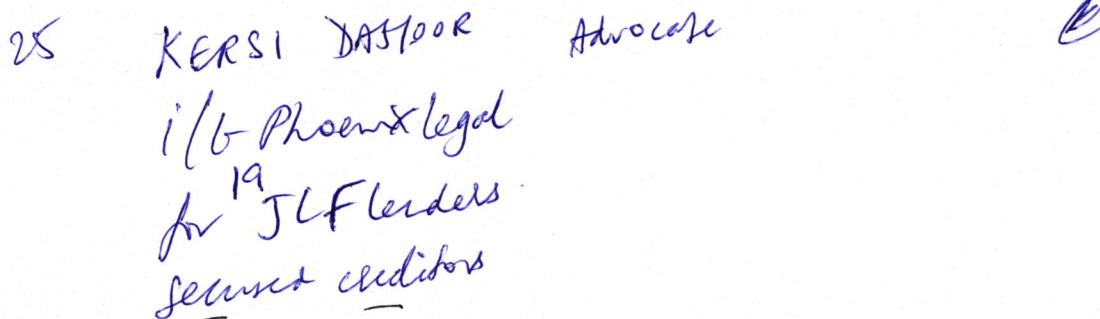 25 KERSI DASTOOR Advocate
i/b Phoenix legal
for 19 JLF lenders
secured creditors